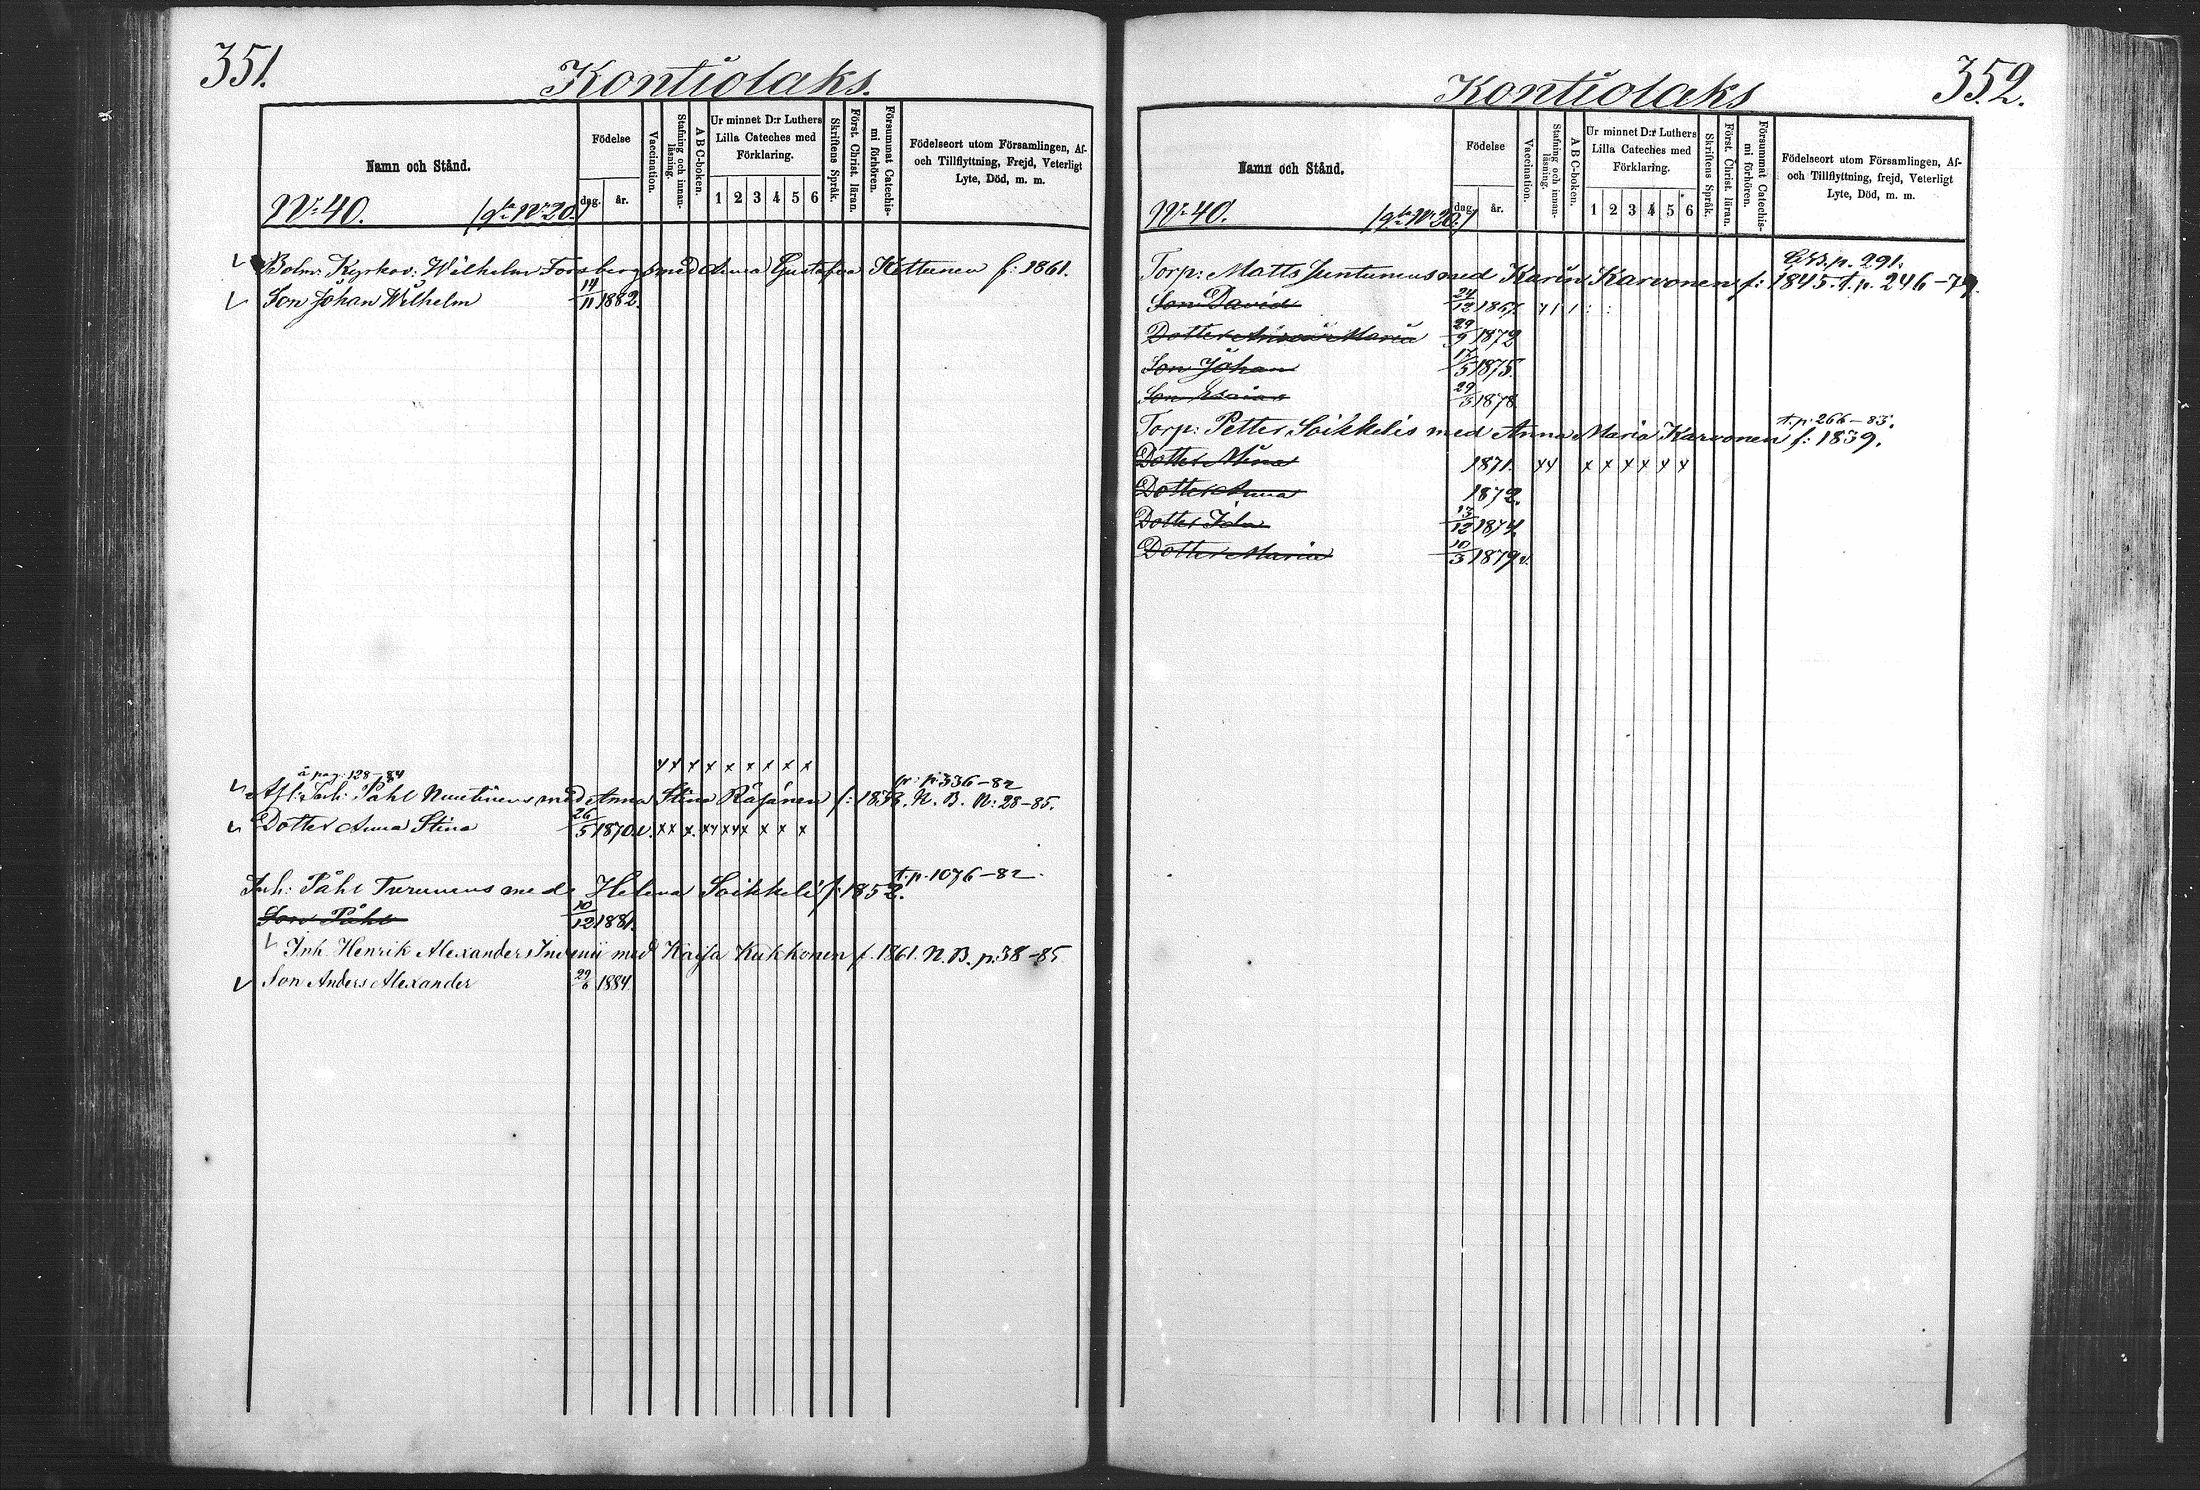 351.
Kontiolaks.
Namn och Stånd.
Födelse
dag.
år.
Vaccination.
Stafning och innan-
läsning.
A B C-boken.
Ur minnet D:r Luthers
Lilla Cateches med
Förklaring.
1 2 3 4 5 6
Skriftens Språk.
Först. Christ. läran.
Försummat Catechis-
mi förhören.
Födelseort utom Församlingen, Af-
och Tillflyttning, Frejd, Veterligt
Lyte, Död, m. m.
N: 40.
Wilhelm Forsberg med Anna Gustafva Kettunen f: 1861.
Son Johan Wilhelm 14/11 1882.
å pag: 128-84
p: 336-82
Påhl med Anna Stina Räsänen N. B. N: 28-85.
Dotter Anna Stina 26/5 1870. v.
t. p. 1076-82.
Inh: Påhl Turunens med Helena Soikkeli f: 1852.
Son Påhl 10/12 1881.
Inh. Henrik Alexander med Kajsa Kukkonen f. 1861. N. B. p. 38-85
Son Anders Alexander 29/6 1884.
352.
Kontiolaks
Namn och Stånd.
Födelse
dag.
år.
Vaccination.
Stafning och innan-
läsning.
A B C-boken.
Ur minnet D:r Luthers
Lilla Cateches med
Förklaring.
1 2 3 4 5 6
Skriftens Språk.
Först. Christ. läran.
Försummat Catechis-
mi förhören.
Födelseort utom Församlingen, Af-
och Tillflyttning, frejd, Veterligt
Lyte, Död, m. m.
N: 40.
p. 291.
Torp: Matts Juntunens med Karin Karvonen f: 1845. t. p. 246-79.
Son David 24/12
Dotter Maria 29/9 1872
Son Johan 17/5 1875.
Son Esaias 29/5 1878
t. p. 266-83.
Torp: Petter Soikkelis med Anna Maria Karvonen f: 1839.
Dotter Mina 1871.
Dotter Anna 1872.
Dotter Ida 13/12 1874.
Dotter Maria 10/3 1879 v.